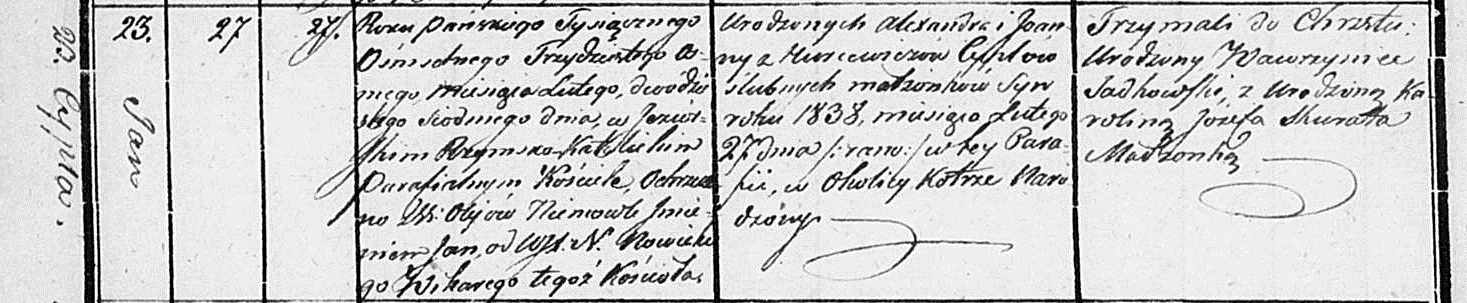 23. Cyppla.
Jan
23.
27
27.
Roku Pańskiego Tysiącznego
Ośmsetnego Trzydziestego o-
smego, miesiąca Lutego, dwódzie
stego siodmego dnia, w Jeziór-
skim Rzymsko-Katolickim
Parafialnym Kościele, Ochrzczo
no W: Olejów Niemowle Jmie-
niem Jan, od WJX. N. Nowickie
go Wikarego tegoż Kościoła,
Urodzonych Alexandra i Joan-
ny z Cypplow
slubnych małżonków Syn
roku 1838, miesiąca Lutego
27 dnia /: rano :/ w tey Para-
fii, w Okolicy Kotrze Naro
dzony.
Trzymali do Chrztu:
Urodzony Wawrzyniec
Sadkowski, z Urodzoną Ka-
roliną Jozefa Skuratta
Małżonką